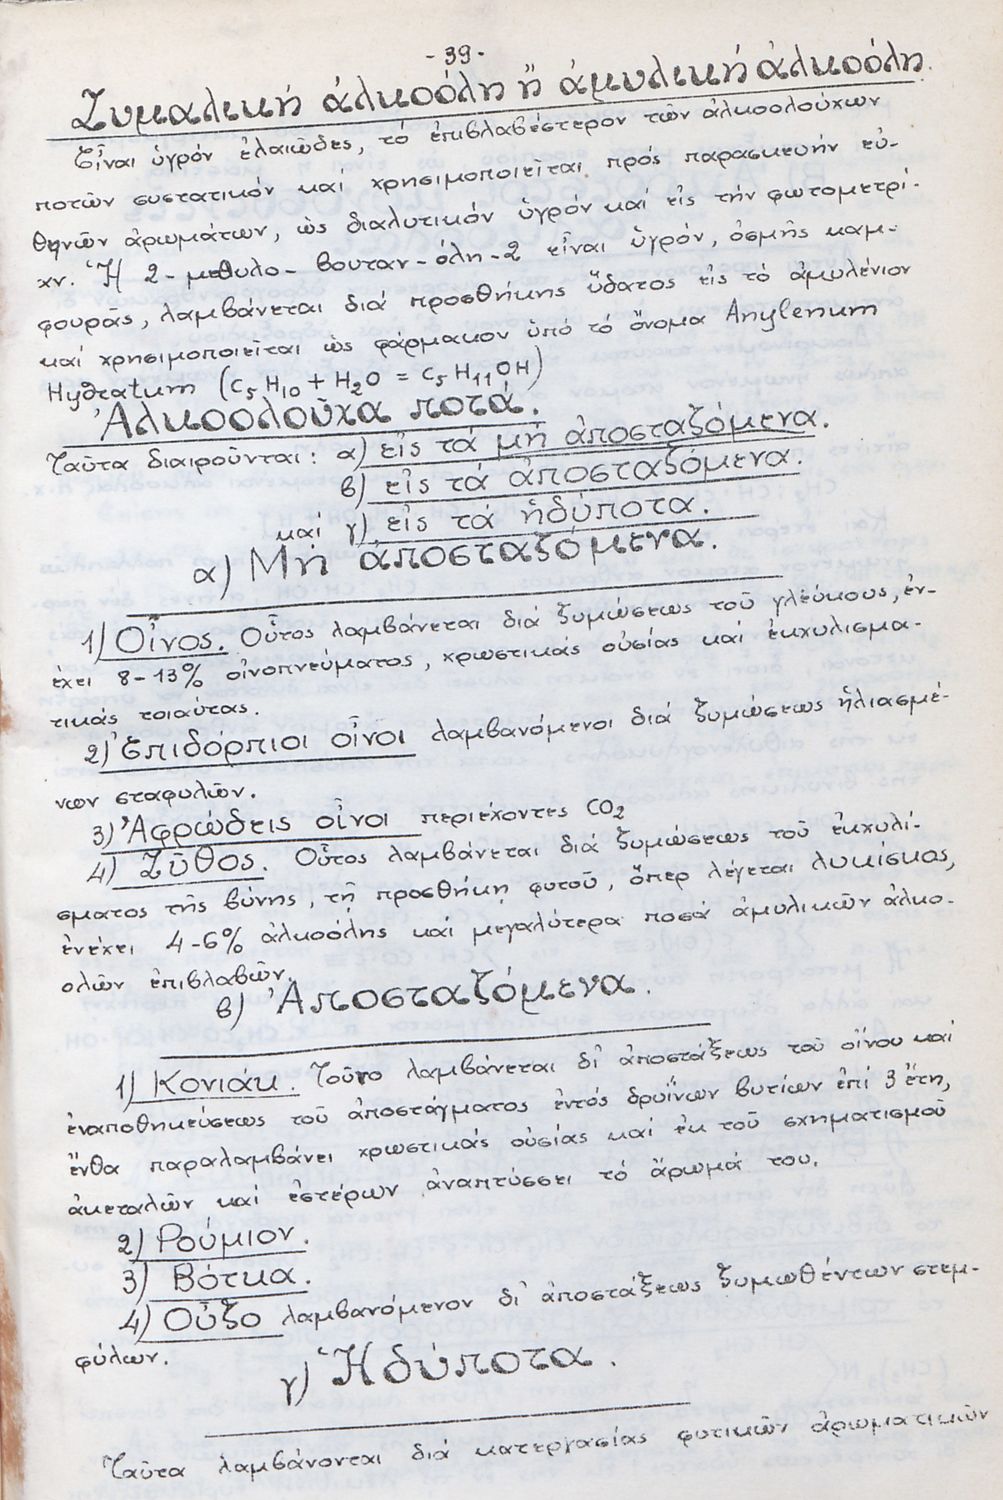 - 39 -
Ζυμαλική ἀλκοόλη ἤ ἀμυλική ἀλκοόλη.
Εἶναι ὑγρόν ἐλαιῶδες, τό ἐπιβλαβέστερον τῶν ἀλκοολούχων
ποτῶν συστατικόν καί χρησιμοποιεῖται πρός παρασκευήν εὐ-
θηνῶν ἀρωμάτων, ὡς διαλυτικόν ὑγρόν καί εἰς τήν φωτομετρί-
χν. Ἡ 2 - μεθυλο - βουταν - όλη - 2 εἶναι ὑγρόν, ὀσμῆς καμ-
φουρᾶς, λαμβάνεται διά προσθήκης ὕδατος εἰς τό ἀμυλένιον
καί χρησιμοποιεῖται ὡς φάρμακον ὑπό τό ὄνομα Anylenum
Hydratum (C5 H10 + H2O = C5 H11 OH)
Ἀλκοολοῦχα ποτά.
Ταῦτα διαιροῦνται: α) εἰς τά μή ἀποσταζόμενα.
β) εἰς τά ἀποσταζόμενα.
καί γ) εἰς τά ἡδύποτα.
α) Μή ἀποσταζόμενα.
1) Οἶνος. Οὗτος λαμβάνεται διά ζυμώσεως τοῦ γλεύκους, ἐν-
έχει 8 - 13% οἰνοπνεύματος, χρωστικάς οὐσίας καί ἐκχυλισμα-
τικάς τοιαύτας.
2) Ἐπιδόρπιοι οἶνοι λαμβανόμενοι διά ζυμώσεως ἡλιασμέ-
νων σταφυλῶν.
3) Ἀφρώδεις οἶνοι περιέχοντες CO2
4) Ζῦθος. Οὗτος λαμβάνεται διά ζυμώσεως τοῦ ἐκχυλί-
σματος τῆς βύνης, τῇ προσθήκῃ φυτοῦ, ὅπερ λέγεται λυκίσκος,
ἐνέχει 4 - 6% ἀλκοόλης καί μεγαλύτερα ποσά ἀμυλικῶν ἀλκο-
ολῶν ἐπιβλαβῶν.
β) Ἀποσταζόμενα.
1) Κονιάκ. Τοῦτο λαμβάνεται δι' ἀποστάξεως τοῦ οἴνου καί
ἐναποθηκεύσεως τοῦ ἀποστάγματος ἐντός δρυΐνων βυτίων ἐπί 3 ἔτη,
ἔνθα παραλαμβάνει χρωστικάς οὐσίας καί ἐκ τοῦ σχηματισμοῦ
ἀκεταλῶν καί ἐστέρων ἀναπτύσσει τό ἄρωμά του.
2) Ρούμιον.
3) Βότκα.
4) Οὖζο λαμβανόμενον δι' ἀποστάξεως ζυμωθέντων στεμ-
φύλων.
γ) Ἡδύποτα.
Ταῦτα λαμβάνονται διά κατεργασίας φυτικῶν ἀρωματικῶν